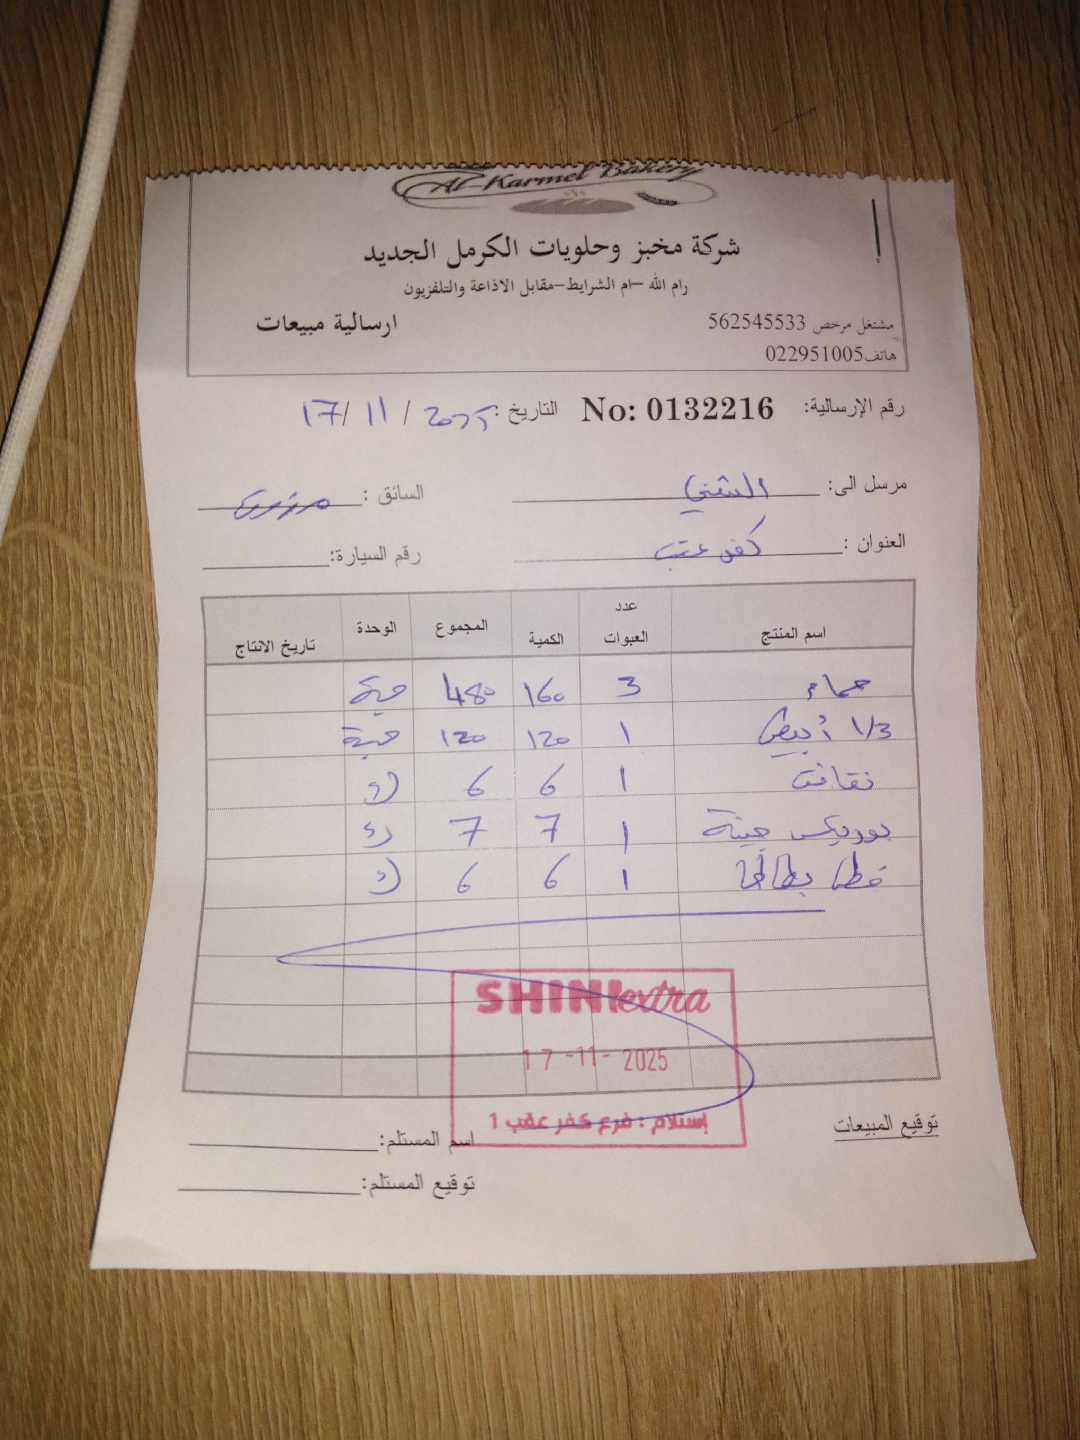 Al-Karmel Bakery
شركة مخبز وحلويات الكرمل الجديد
رام الله -ام الشرايط-مقابل الاذاعة والتلفزيون
مشتغل مرخص 562545533 ارسالية مبيعات
هاتف022951005
رقم الإرسالية: No: 0132216 التاريخ: 17/ 11 / 2025
مرسل الى: الشني السائق:
العنوان: كفر عقب رقم السيارة:
اسم المنتج عدد العبوات الكمية المجموع الوحدة تاريخ الانتاج
حمام 3 160 480 حبة
1/3 أبيض 1 120 120 حبة
نقانق 1 6 6 ك
بوريكس جبنة 1 7 7 ك
1 6 6 ك
SHINI extra
17-11-2025
إستلام : فرع كفر عقب 1
توقيع المبيعات
اسم المستلم:
توقيع المستلم: